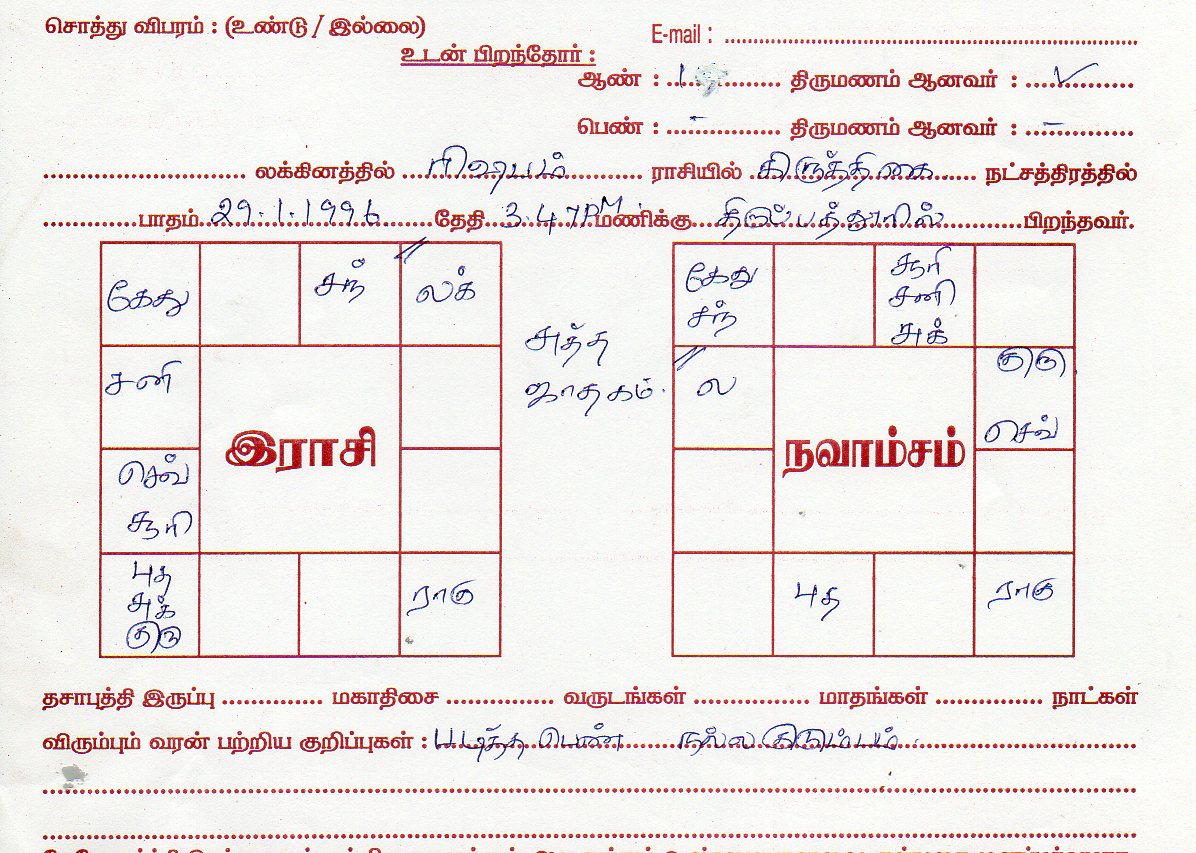 சொத்து விபரம் : (உண்டு / இல்லை)
E-mail : ..............................
உடன் பிறந்தோர் :
ஆண் : 1 திருமணம் ஆனவர் : ✓
பெண் : - திருமணம் ஆனவர் : -
லக்கினத்தில் ரிஷபம் ராசியில் கிருத்திகை நட்சத்திரத்தில்
பாதம் 29.1.1996 தேதி 3.47PM மணிக்கு திருப்பத்தூரில் பிறந்தவர்.
கேது சந் லக்
சனி
இராசி
செவ்
சூரி
புத
சுக்
குரு
ராகு
அத்த
ஜாதகம்.
கேது
சந்
சூரி
சனி
சுக்
ல
குரு
செவ்
நவாம்சம்
புத ராகு
தசாபுத்தி இருப்பு .............. மகாதிசை .............. வருடங்கள் .............. மாதங்கள் .............. நாட்கள்
விரும்பும் வரன் பற்றிய குறிப்புகள் : படித்த பெண் நல்ல குடும்பம்.